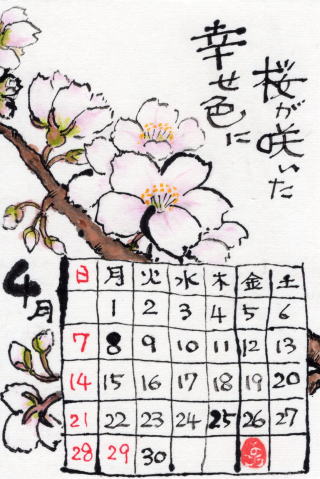 桜が咲いた
幸せ色に
4月
日 月 火 水 木 金 土
1 2 3 4 5 6
7 8 9 10 11 12 13
14 15 16 17 18 19 20
21 22 23 24 25 26 27
28 29 30